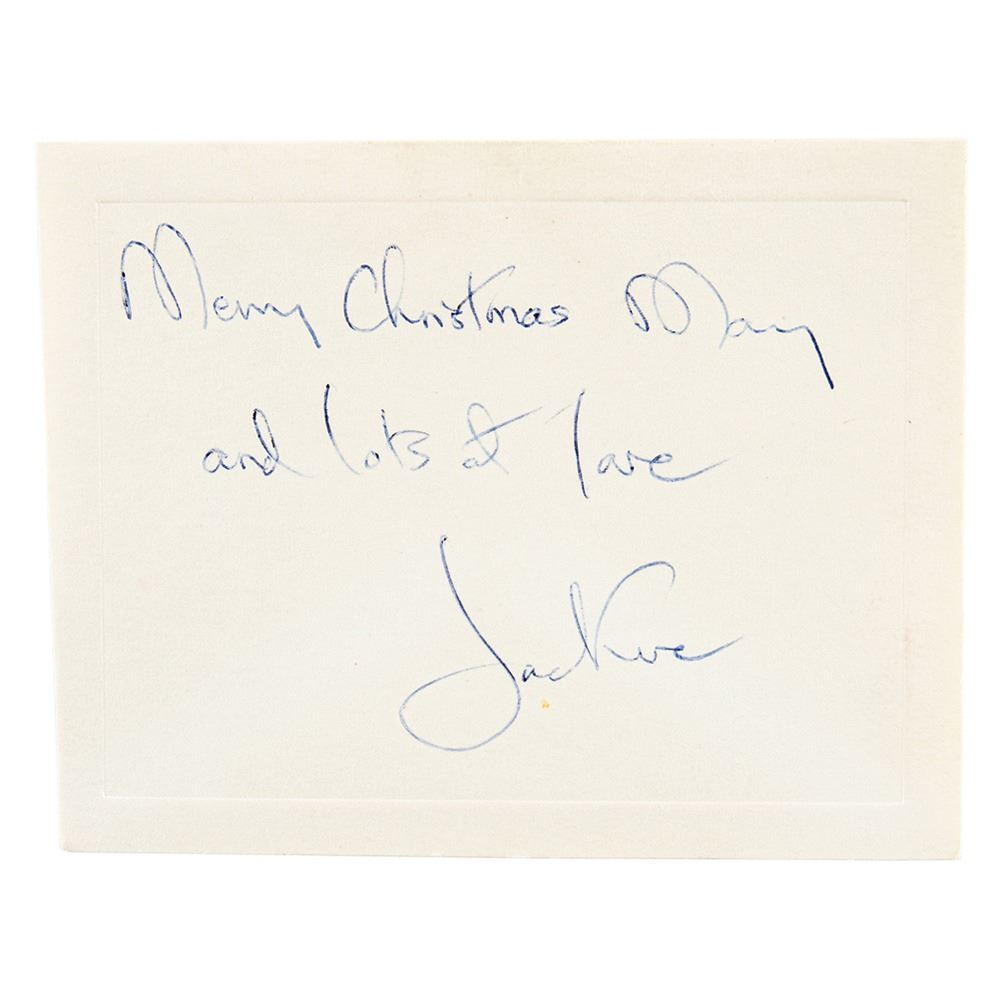 Merry Christmas Mary
and lots of love
Jackie